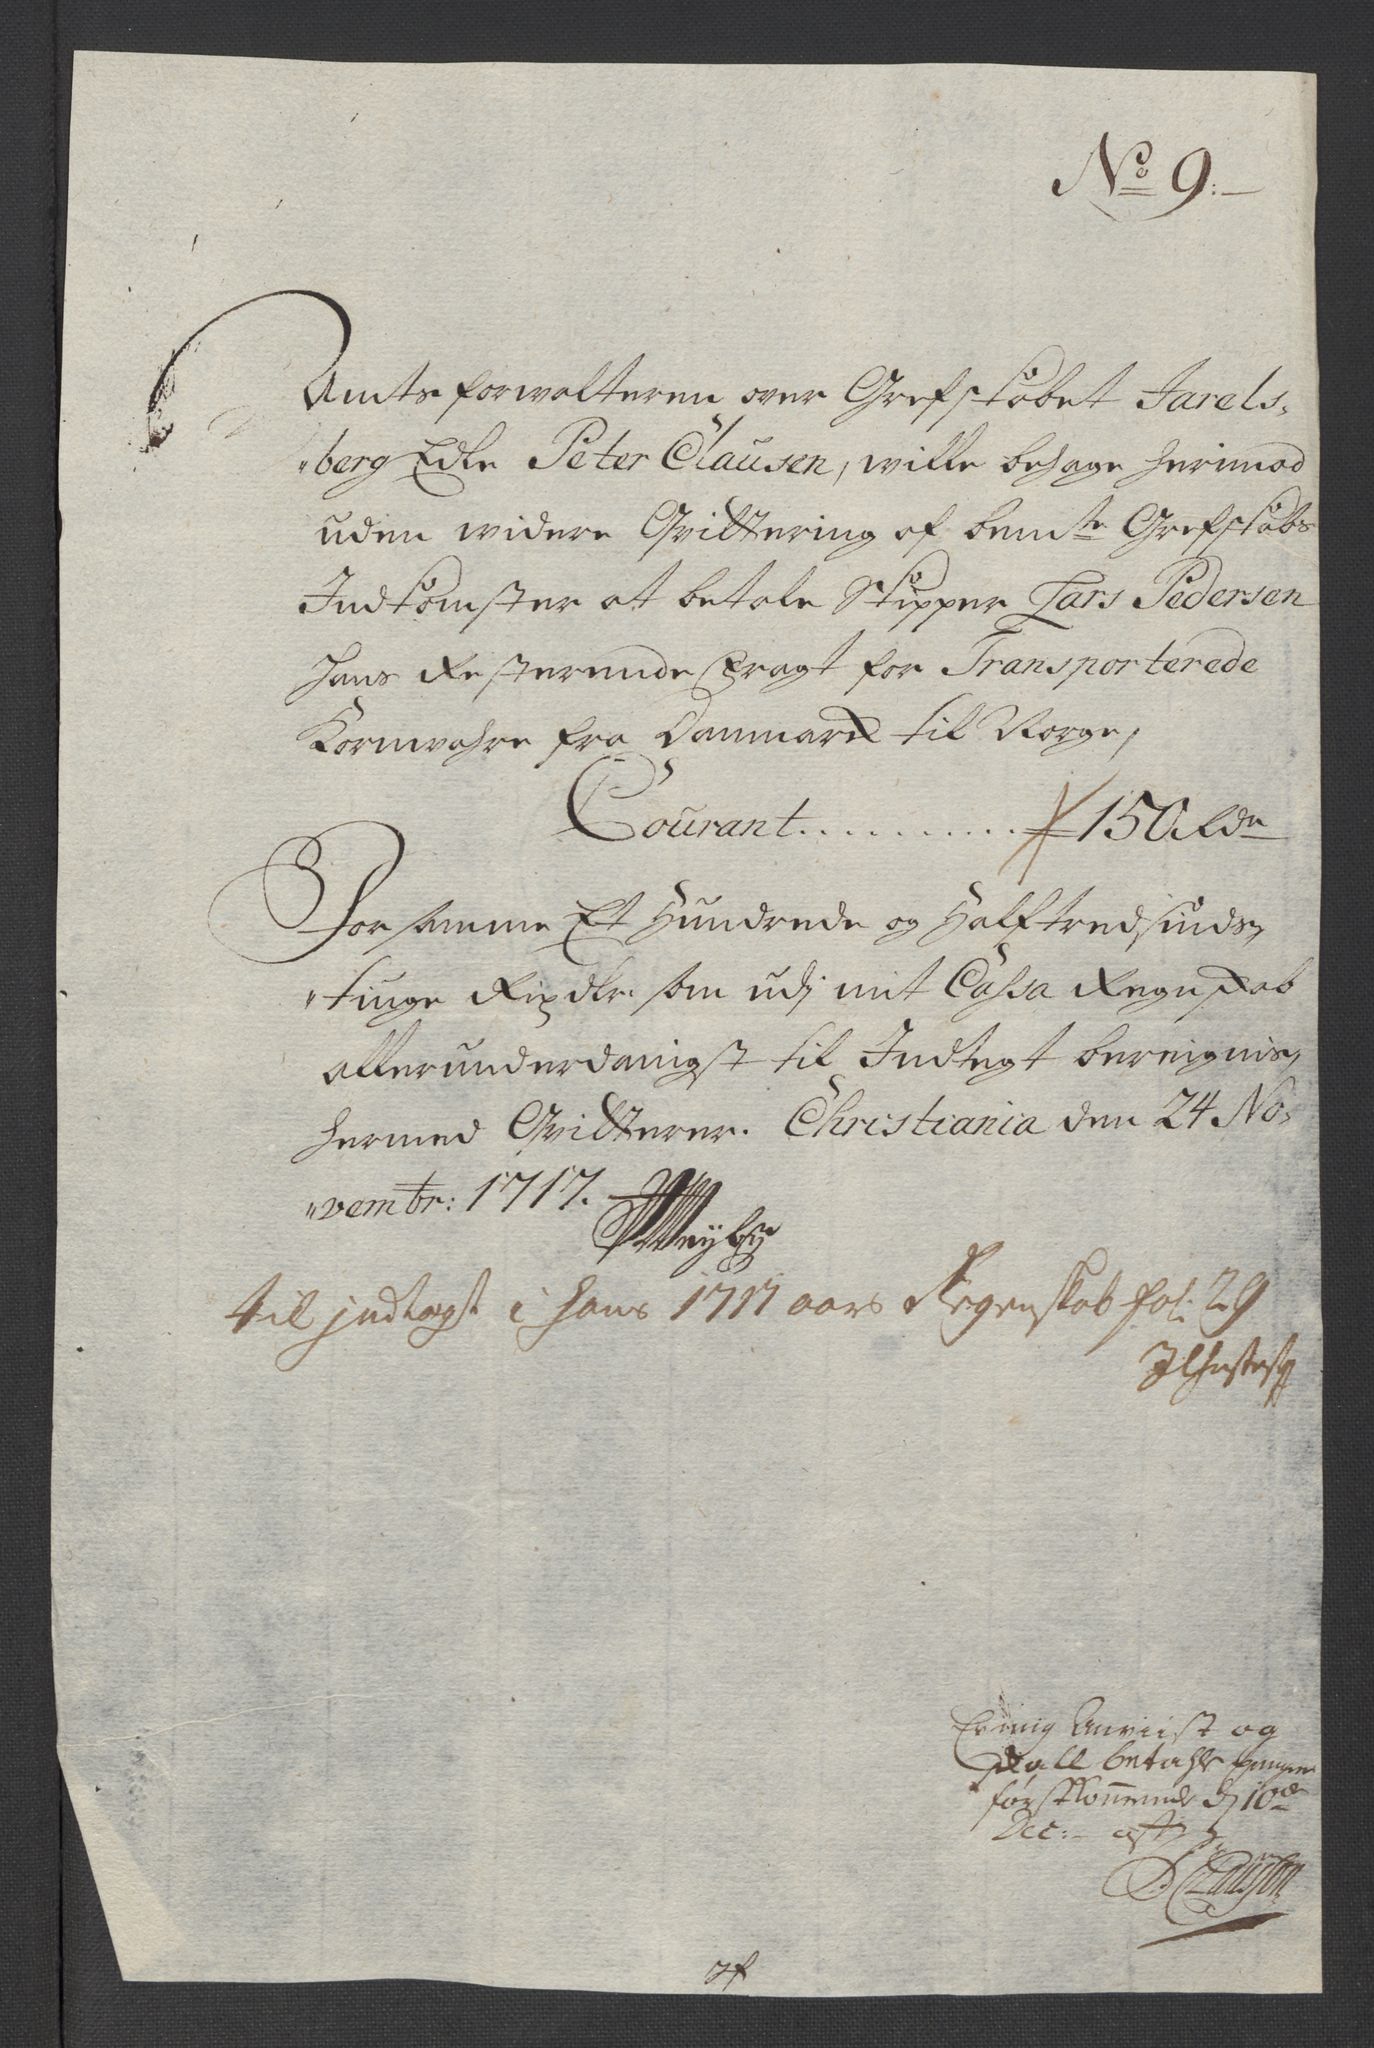 No 9:
Amtsforwalteren over Grefskabet Jarels,
"berg Edle Peter Clausen, wille behage herimod
uden widere Qvittering af bemte Grefskabs
Indkomster at betale Skipper Lars Pedersen
hans Resterende Fragt for Transporterede
Kornwahre fra Danmark til Norge,
Courant.......... 150 Rdr
For samme Et Hundrede og Halftredsinds,
"tiuge Rixdlr som udj mit Cassa Regnskab
allerunderdanigst til Indtegt bereignis,
hermed Qvitterer. Christiania den 24 No,
"vembr: 1717.
til jndtægt i hans 1717 aars Regenskab fol: 29
Er mig Anviist og
skall betahle pengene
førstkommende dj 10de
Dec:
P. Clausen